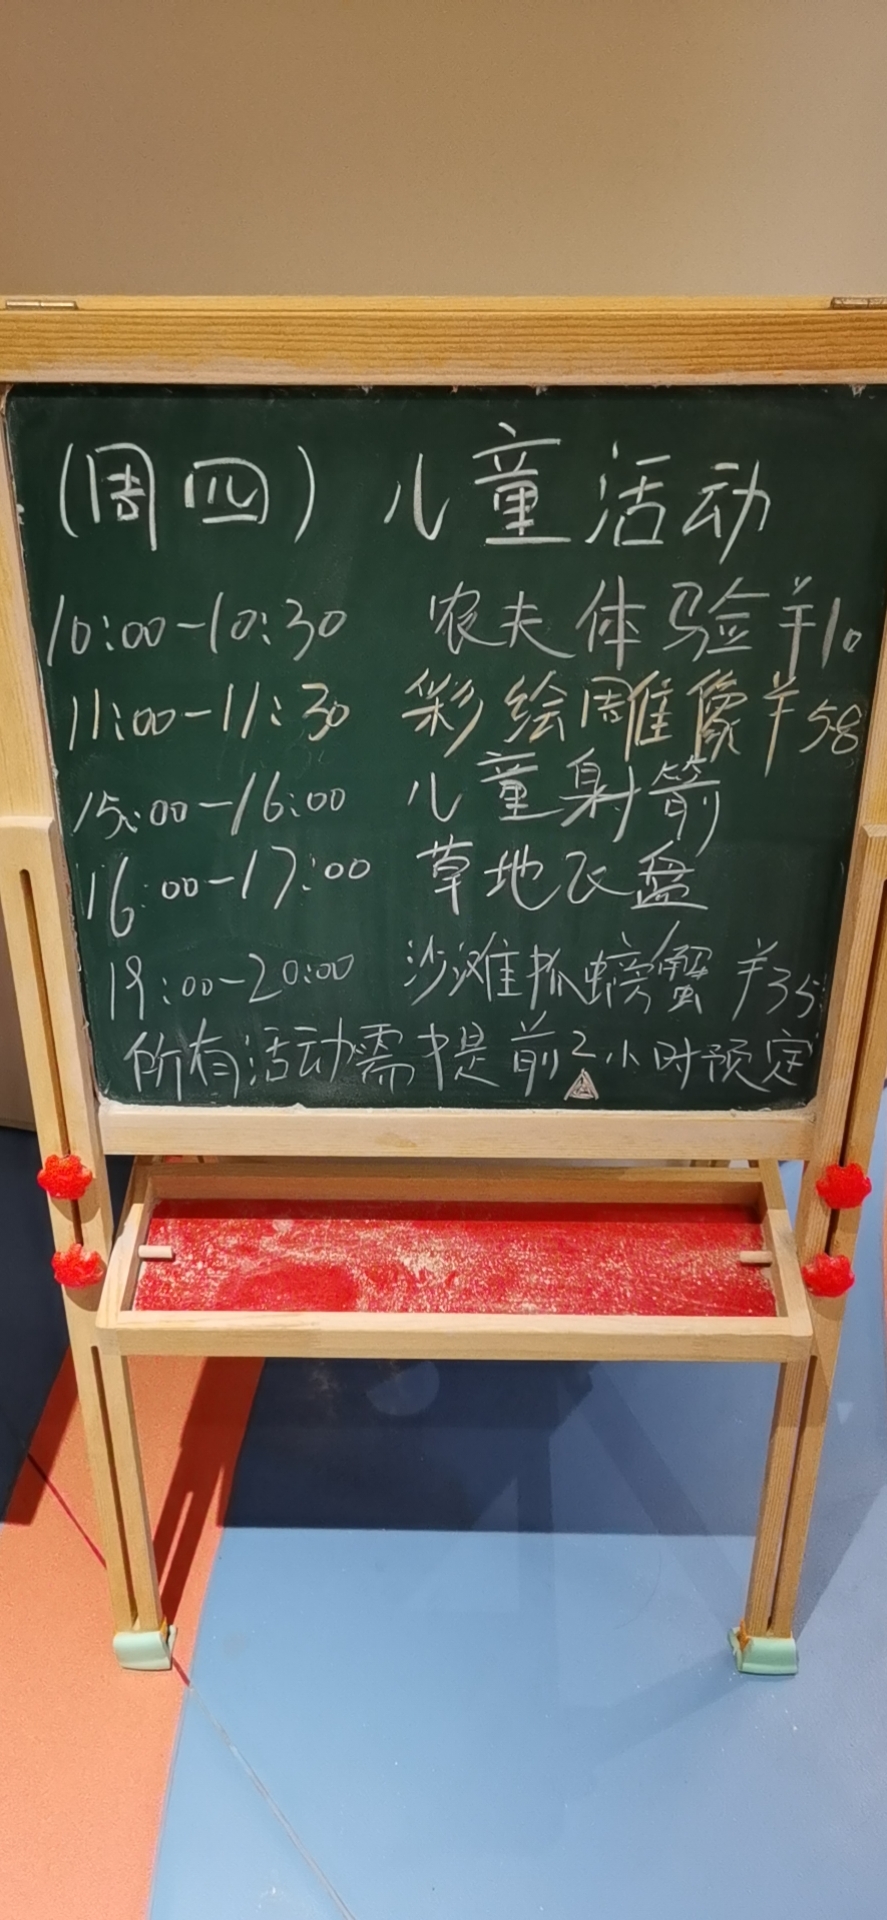 (周四) 儿童活动
10:00-10:30 农夫体验 ¥10
11:00-11:30 彩绘雕像 ¥58
15:00-16:00 儿童射箭
16:00-17:00 草地飞盘
19:00-20:00 沙滩抓螃蟹 ¥35
所有活动需提前2小时预定